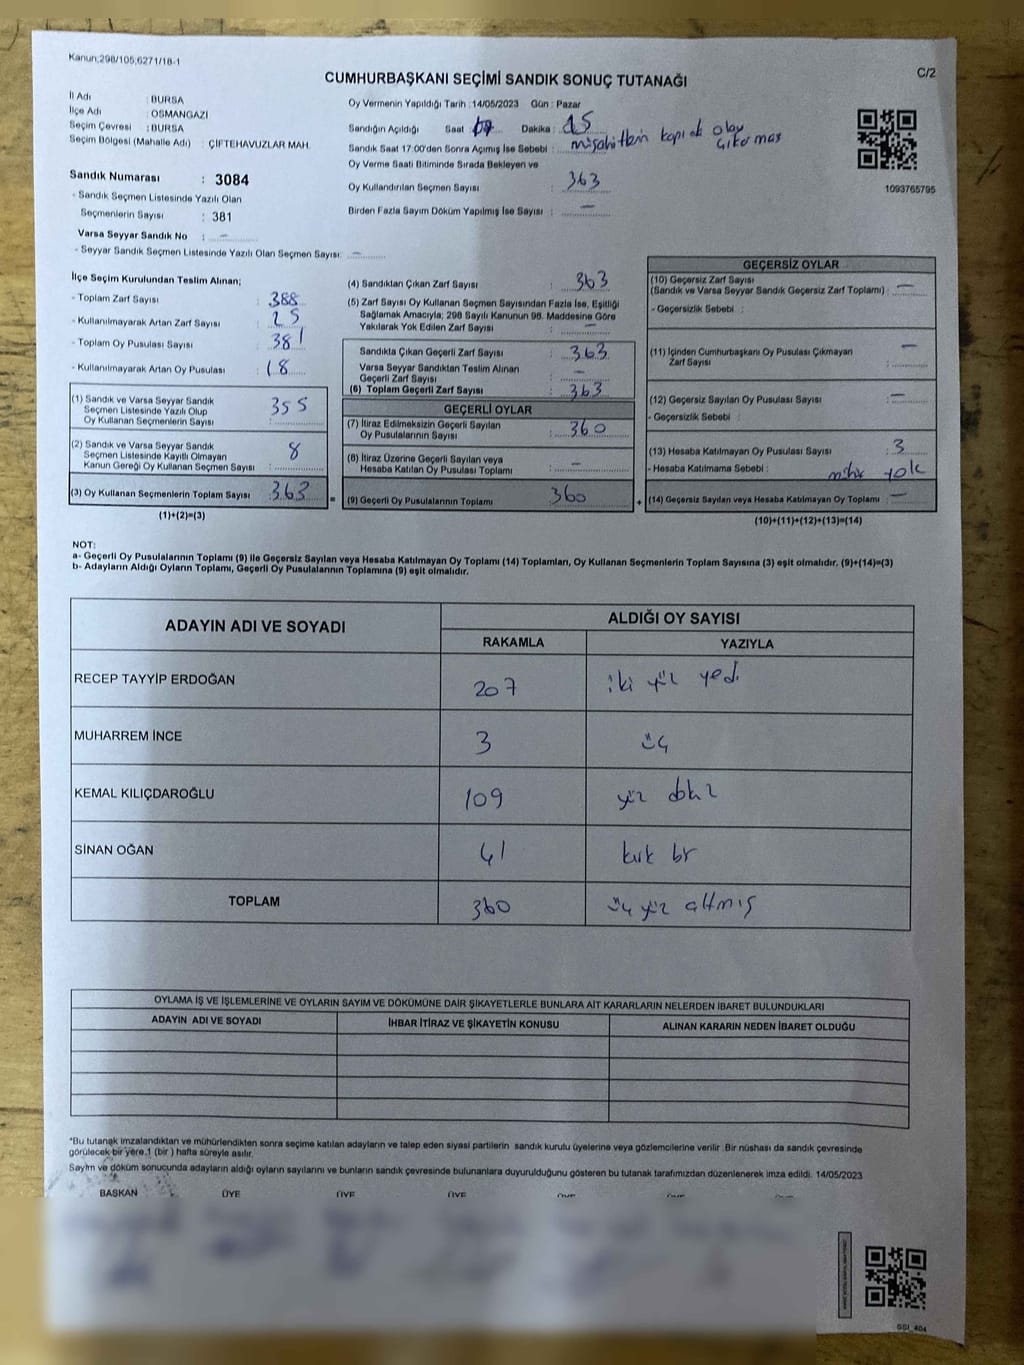 Kanun;298/105,6271/18-1
C/2
CUMHURBAŞKANI SEÇİMİ SANDIK SONUÇ TUTANAĞI
İl Adı : BURSA
İlçe Adı : OSMANGAZİ
Seçim Çevresi : BURSA
Seçim Bölgesi (Mahalle Adı) : ÇİFTEHAVUZLAR MAH.
Sandık Numarası : 3084
- Sandık Seçmen Listesinde Yazılı Olan
Seçmenlerin Sayısı : 381
Varsa Seyyar Sandık No : –
- Seyyar Sandık Seçmen Listesinde Yazılı Olan Seçmen Sayısı: –
Oy Vermenin Yapıldığı Tarih : 14/05/2023 Gün : Pazar
Sandığın Açıldığı Saat 17 Dakika : 15
Sandık Saat 17:00'den Sonra Açımış İse Sebebi : müşahitlerin kapıda olay çıkarması
Oy Verme Saati Bitiminde Sırada Bekleyen ve
Oy Kullandırılan Seçmen Sayısı : 363
Birden Fazla Sayım Döküm Yapılmış İse Sayısı : –
1093765795
İlçe Seçim Kurulundan Teslim Alınan;
- Toplam Zarf Sayısı : 388
- Kullanılmayarak Artan Zarf Sayısı : 25
- Toplam Oy Pusulası Sayısı : 381
- Kullanılmayarak Artan Oy Pusulası : 18
(1) Sandık ve Varsa Seyyar Sandık
Seçmen Listesinde Yazılı Olup
Oy Kullanan Seçmenlerin Sayısı : 355
(2) Sandık ve Varsa Seyyar Sandık
Seçmen Listesinde Kayıtlı Olmayan
Kanun Gereği Oy Kullanan Seçmen Sayısı : 8
(3) Oy Kullanan Seçmenlerin Toplam Sayısı : 363
(1)+(2)=(3)
(4) Sandıktan Çıkan Zarf Sayısı : 363
(5) Zarf Sayısı Oy Kullanan Seçmen Sayısından Fazla İse, Eşitliği
Sağlamak Amacıyla; 298 Sayılı Kanunun 98. Maddesine Göre
Yakılarak Yok Edilen Zarf Sayısı : –
Sandıkta Çıkan Geçerli Zarf Sayısı : 363
Varsa Seyyar Sandıktan Teslim Alınan
Geçerli Zarf Sayısı : –
(6) Toplam Geçerli Zarf Sayısı : 363
GEÇERLİ OYLAR
(7) İtiraz Edilmeksizin Geçerli Sayılan
Oy Pusulalarının Sayısı : 360
(8) İtiraz Üzerine Geçerli Sayılan veya
Hesaba Katılan Oy Pusulası Toplamı : –
=
(9) Geçerli Oy Pusulalarının Toplamı : 360
+
GEÇERSİZ OYLAR
(10) Geçersiz Zarf Sayısı
(Sandık ve Varsa Seyyar Sandık Geçersiz Zarf Toplamı) : –
- Geçersizlik Sebebi :
(11) İçinden Cumhurbaşkanı Oy Pusulası Çıkmayan
Zarf Sayısı : –
(12) Geçersiz Sayılan Oy Pusulası Sayısı : –
- Geçersizlik Sebebi :
(13) Hesaba Katılmayan Oy Pusulası Sayısı : 3
- Hesaba Katılmama Sebebi : mühür yok
(14) Geçersiz Sayılan veya Hesaba Katılmayan Oy Toplamı : –
(10)+(11)+(12)+(13)=(14)
NOT:
a- Geçerli Oy Pusulalarının Toplamı (9) ile Geçersiz Sayılan veya Hesaba Katılmayan Oy Toplamı (14) Toplamları, Oy Kullanan Seçmenlerin Toplam Sayısına (3) eşit olmalıdır. (9)+(14)=(3)
b- Adayların Aldığı Oyların Toplamı, Geçerli Oy Pusulalarının Toplamına (9) eşit olmalıdır.
ADAYIN ADI VE SOYADI
ALDIĞI OY SAYISI
RAKAMLA YAZIYLA
RECEP TAYYİP ERDOĞAN 207 iki yüz yedi
MUHARREM İNCE 3 üç
KEMAL KILIÇDAROĞLU 109 yüz dokuz
SİNAN OĞAN 41 kırk bir
TOPLAM 360 üç yüz altmış
OYLAMA İŞ VE İŞLEMLERİNE VE OYLARIN SAYIM VE DÖKÜMÜNE DAİR ŞİKAYETLERLE BUNLARA AİT KARARLARIN NELERDEN İBARET BULUNDUKLARI
ADAYIN ADI VE SOYADI İHBAR İTİRAZ VE ŞİKAYETİN KONUSU ALINAN KARARIN NEDEN İBARET OLDUĞU
*Bu tutanak imzalandıktan ve mühürlendikten sonra seçime katılan adayların ve talep eden siyasi partilerin sandık kurulu üyelerine veya gözlemcilerine verilir. Bir nüshası da sandık çevresinde
görülecek bir yere 1 (bir) hafta süreyle asılır.
Sayım ve döküm sonucunda adayların aldığı oyların sayılarını ve bunların sandık çevresinde bulunanlara duyurulduğunu gösteren bu tutanak tarafımızdan düzenlenerek imza edildi. 14/05/2023
BAŞKAN ÜYE ÜYE ÜYE ÜYE
GSI_404